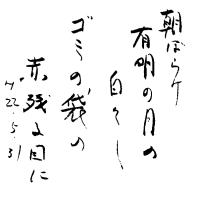 朝ぼらけ
有明の月の
白々し
ゴミの袋の
赤残る目に
H22.5.31